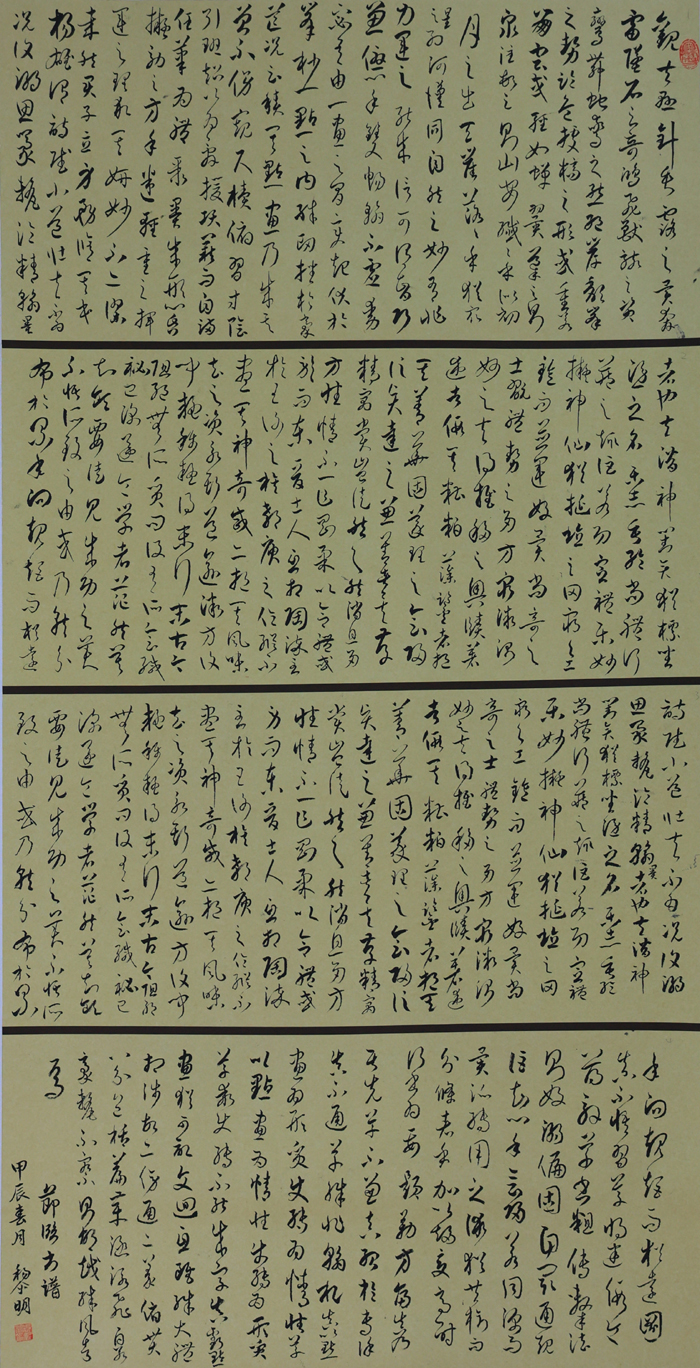 觀夫懸針垂露之異奔
雷墜石之奇鴻飛獸駭之資
鸞舞蛇驚之態絕岸頹峯
之勢臨危據槁之形或重若
崩雲或輕如蟬翼導之則
泉注頓之則山安纖纖乎似初
月之出天崖落落乎猶眾
星之列河漢同自然之妙有非
力運之能成信可謂智巧
兼優心手雙暢翰不虛動
下必有由一畫之間變起伏於
峯杪一點之內殊衄挫於毫
芒況云積其點畫乃成其字
曾不傍窺尺牘俯習寸陰
引班超以為辭援項籍而自滿
任筆為體聚墨成形心昏
擬效之方手迷輕重之揮
運之理求其妍妙不亦謬
哉然君子立身務修其本
楊雄謂詩賦小道壯夫不為
況復溺思毫釐淪精翰墨
者也夫潛神對弈猶標坐
隱之名樂志垂綸尚體行
藏之趣詎若功宣禮樂妙
擬神仙猶埏埴之罔窮與工
鑪而並運好異尚奇之
士翫體勢之多方窮微測
妙之夫得推移之奧賾著
述者假其糟粕藻鑒者挹
其菁華固義理之會歸
信賢達之兼善者矣存
精寓賞豈徒然之能消息多
方性情不一乍剛柔以合體或
而東晉士人互相陶淬至
於王謝之族郗庾之倫縱不
盡其神奇咸亦挹其風味
去之滋永斯道愈微方復
聞疑稱疑得末行末古今
阻絕無所質問設有所會緘
秘已深遂令學者茫然莫
知領要徒見成功之美
不悟所致之由或乃就分
布於累年向規矩而猶遠
詩賦小道壯夫不為況復溺
思毫釐淪精翰墨者也夫潛神
對弈猶標坐隱之名樂志垂綸
尚體行藏之趣詎若功宣禮
樂妙擬神仙猶埏埴之罔
窮與工鑪而並運好異尚
奇之士體勢之多方窮微測
妙之夫得推移之奧賾著述
者假其糟粕藻鑒者挹其
菁華固義理之會歸信
賢達之兼善者矣存精寓
賞豈徒然之能消息多方
性情不一乍剛柔以合體或
而東晉士人互相陶淬
至於王謝之族郗庾之倫縱不
盡其神奇咸亦挹其風味
去之滋永斯道愈微方復聞
疑稱疑得末行末古今阻絕
無所質問設有所會緘秘已
深遂令學者茫然莫知領
要徒見成功之美不悟所
致之由或乃就分布於累
年向規矩而猶遠圖
真不悟習草將迷假令
薄能草書粗傳隸法
則好溺偏固自閡通規
詎知心手會歸若同源而
異派轉用之術猶共樹而
分條者乎加以趨變適時
行書為要題勒方畐真乃
居先草不兼真殆於專謹
真不通草殊非翰札真以點
畫為形質使轉為情性草
以點畫為情性使轉為形質
草乖使轉不能成字真虧點
畫猶可記文迴互雖殊大體
相涉故亦傍通二篆俯貫
八分包括篇章涵泳飛白若
毫釐不察則胡越殊風者
焉
節臨書譜
甲辰春月
黎明